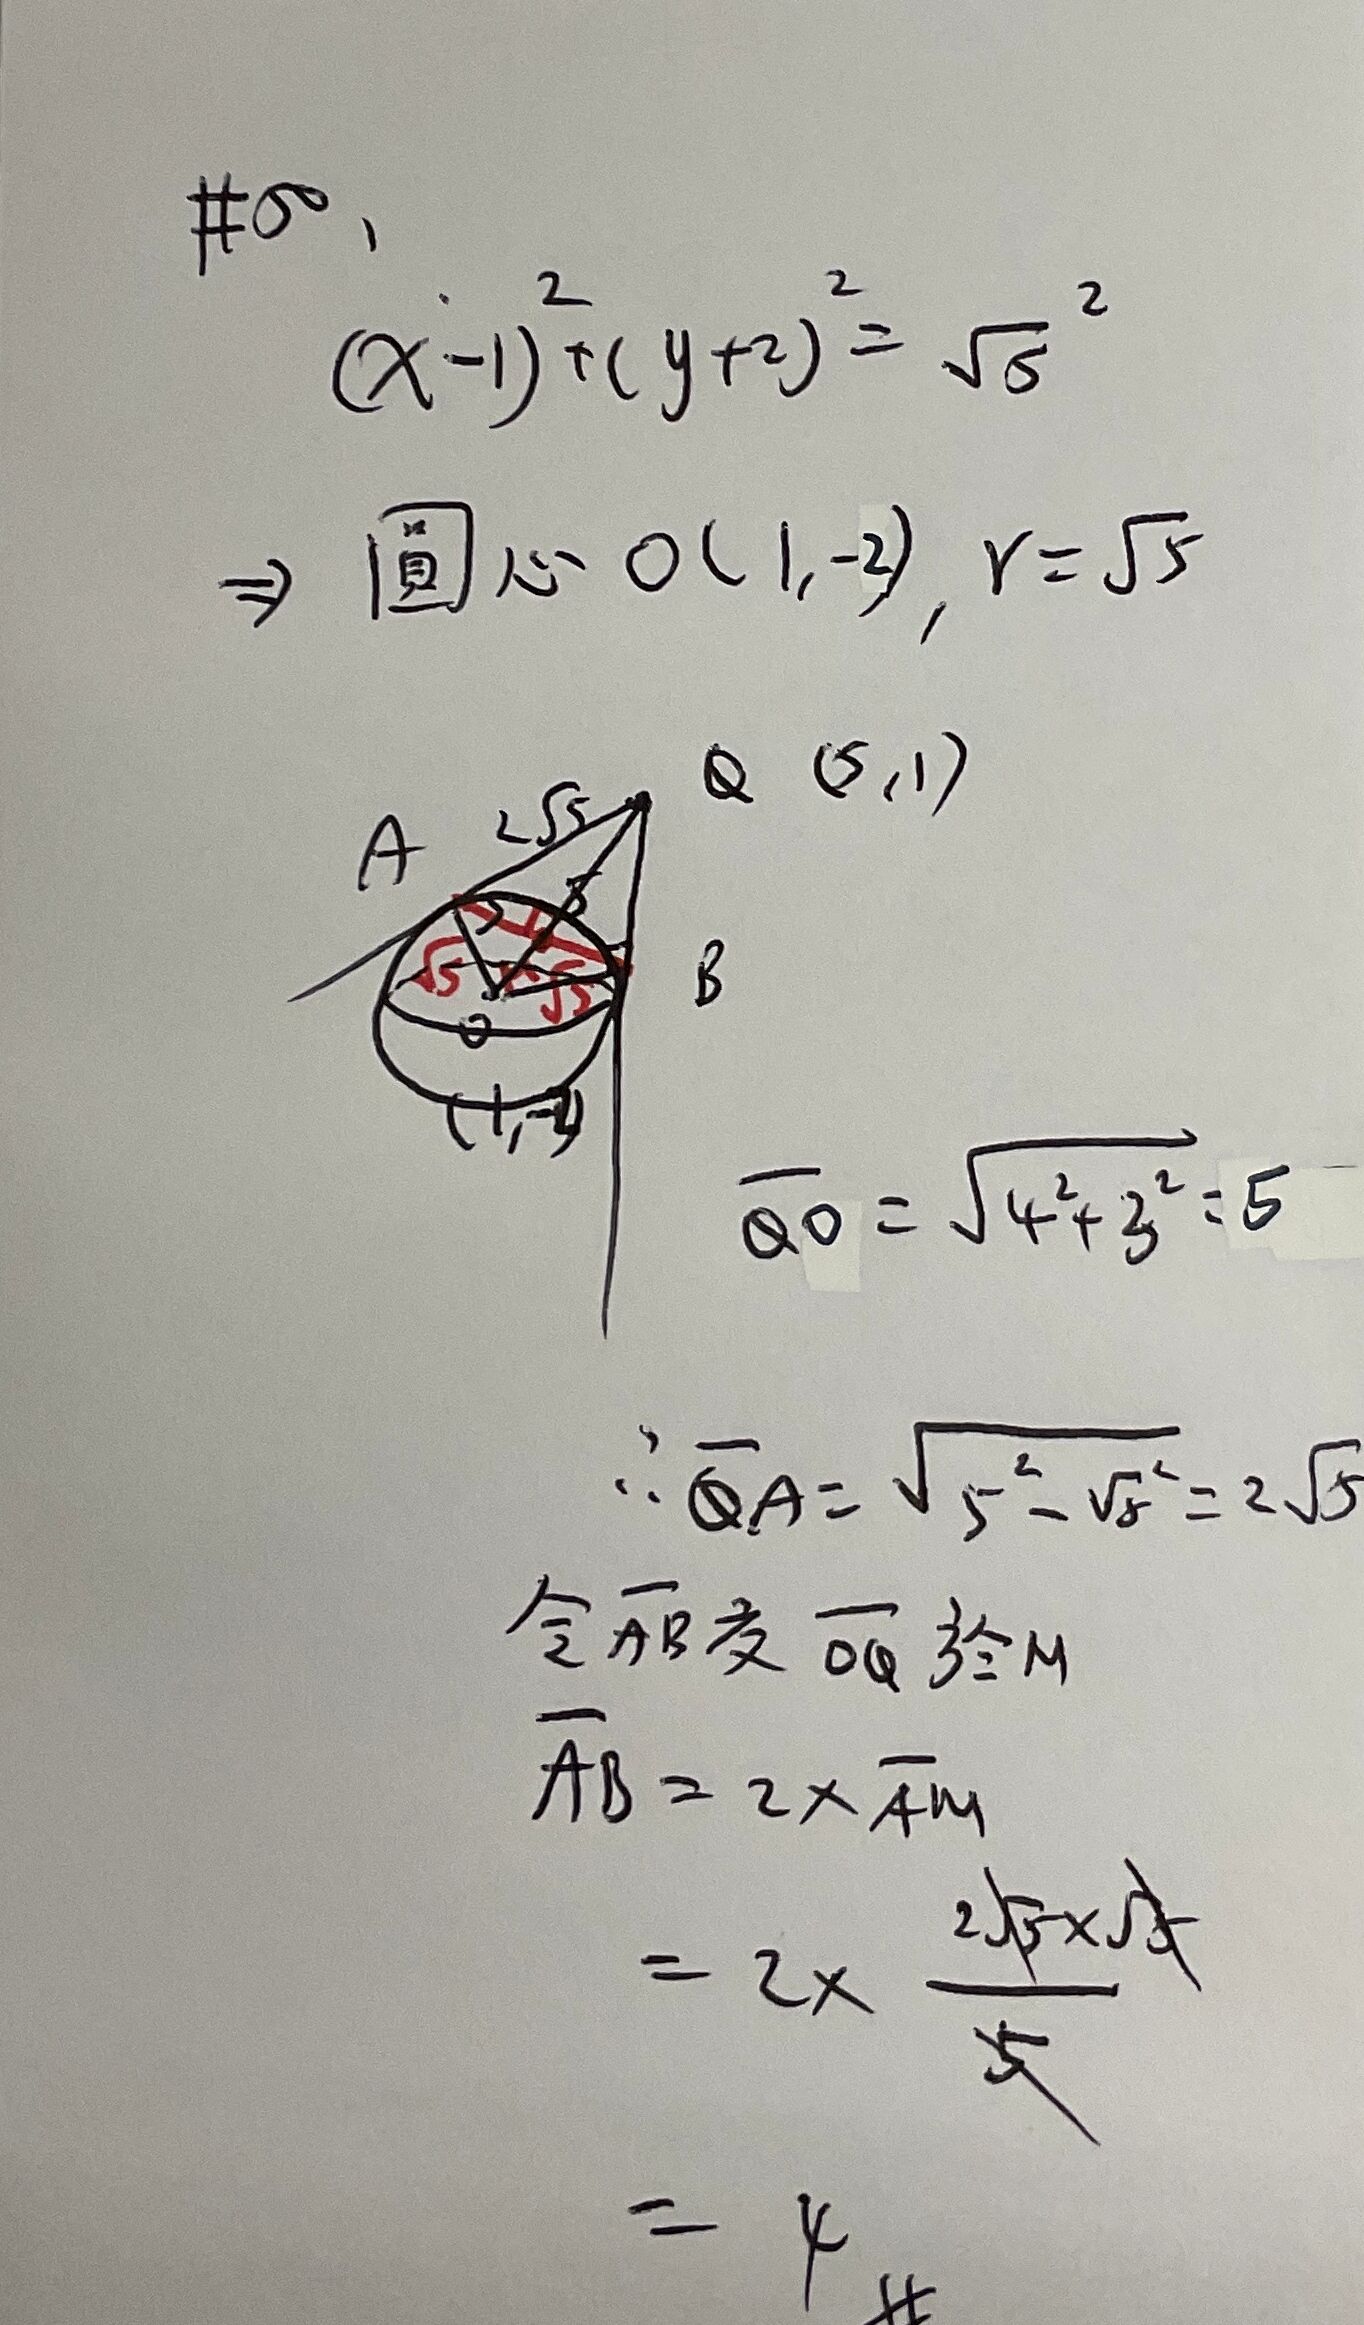 #σ,
(x-1)²+(y+2)²=√5²
⇒ 圓心 O(1,-2), r=√5
Q (5,1)
A 2√5
5
√5 √5 B
O
(1,-2)
QO = √4²+3² = 5
∴ QA = √5²-√5² = 2√5
令 AB 交 OQ 於 M
AB = 2×AM
= 2× 2√5×√5
5
= 4 #